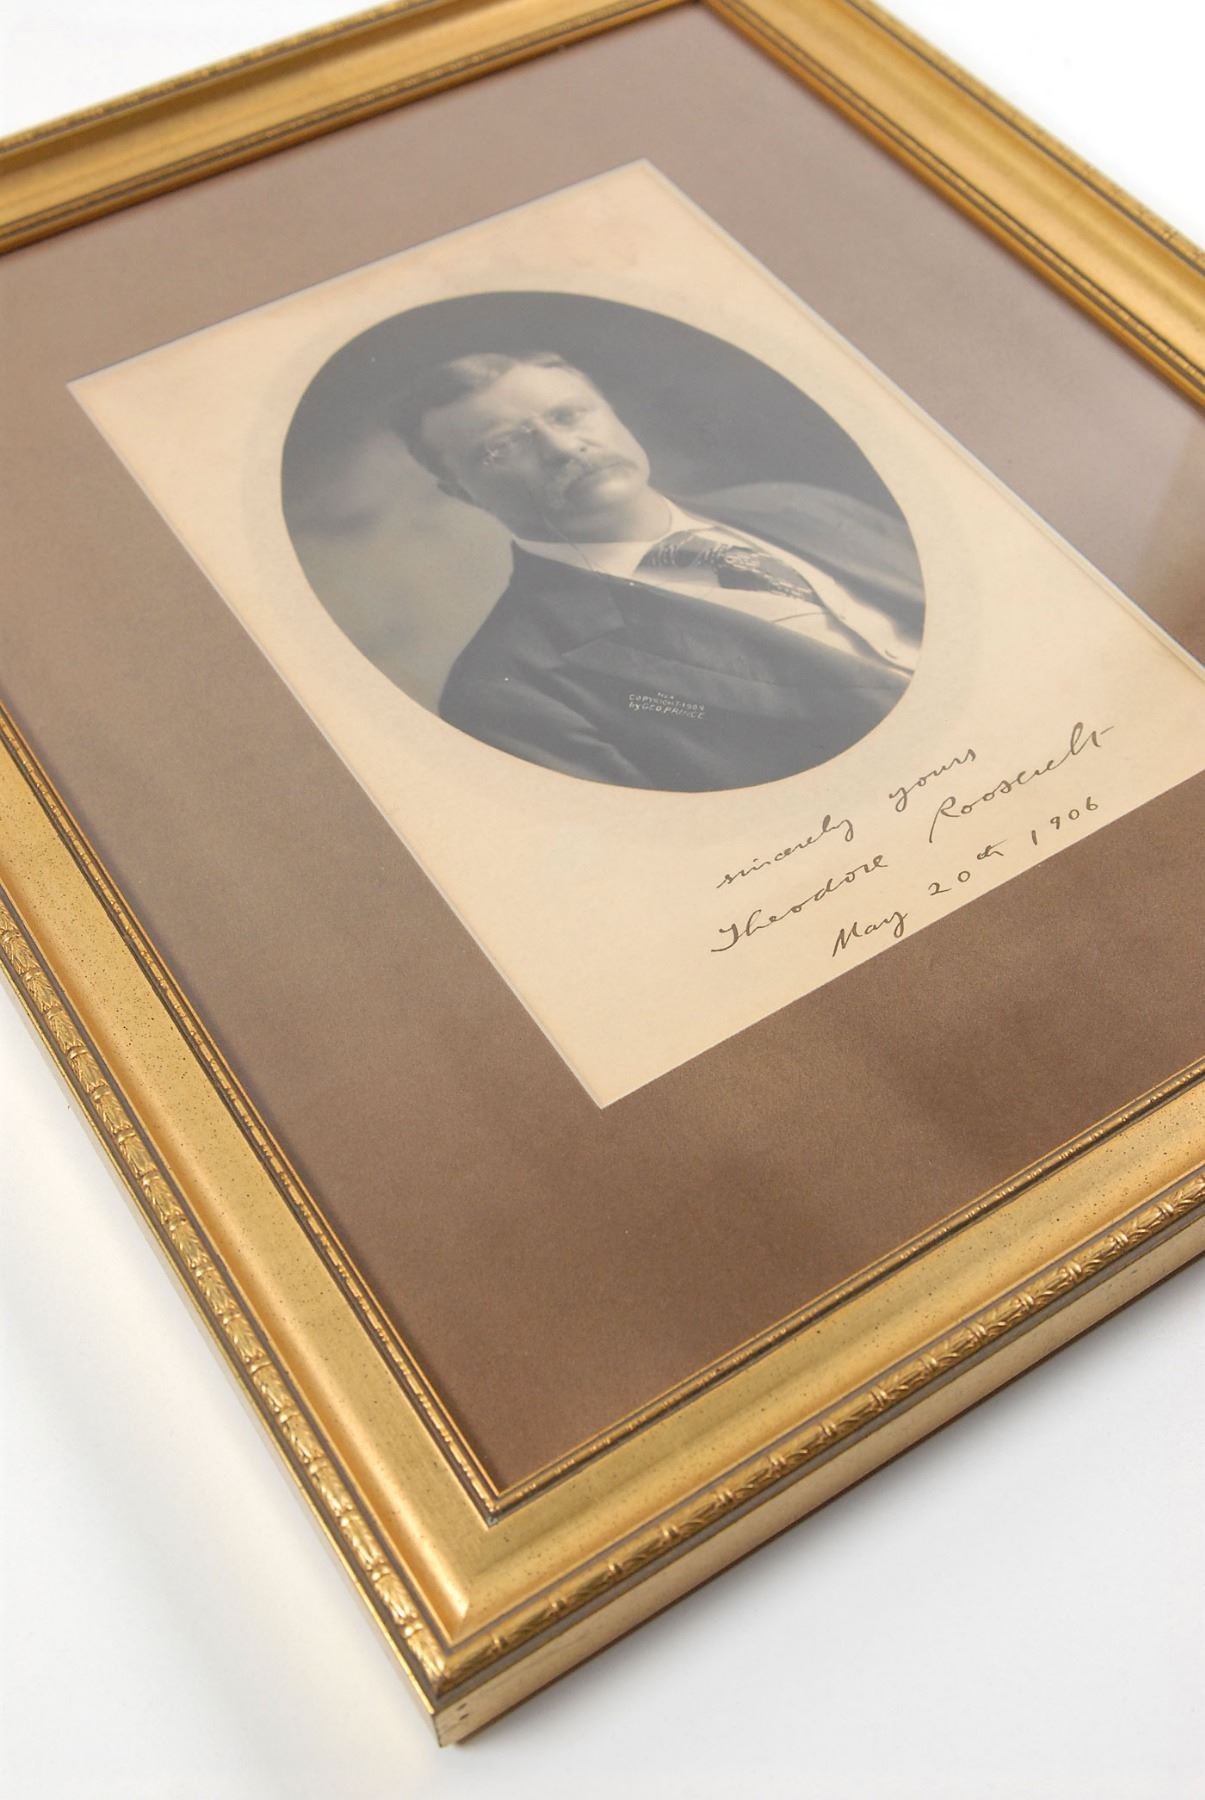 COPYRIGHT 1904
by GEO. PRINCE
sincerely yours
Theodore Roosevelt
May 20th 1906